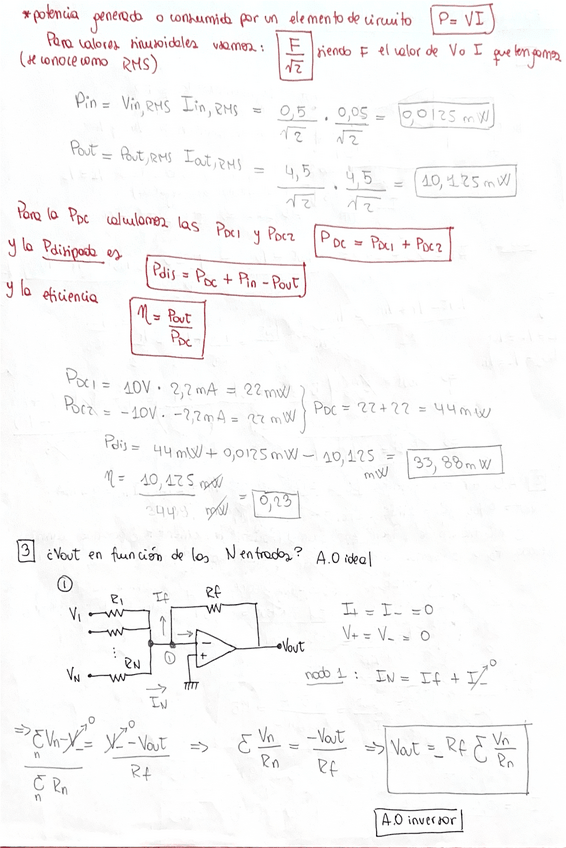 *potencia generada o consumida por un elemento de circuito P= VI
Para valores sinusoidales usamos: F/√2 siendo F el valor de V o I que tengamos
(se conoce como RMS)
Pin = Vin,RMS Iin,RMS = 0,5/√2 · 0,05/√2 = 0,0125 mW
Pout = Pout,RMS Iout,RMS = 4,5/√2 · 4,5/√2 = 10,125 mW
Para la PDC calculamos las PDC1 y PDC2 PDC = PDC1 + PDC2
y la Pdisipada es Pdis = PDC + Pin - Pout
y la eficiencia η = Pout/PDC
PDC1 = 10V · 2,2mA = 22mW
PDC2 = -10V · -2,2mA = 22 mW } PDC = 22+22 = 44mW
Pdis = 44mW + 0,0125mW - 10,125 mW = 33,88mW
η = 10,125 mW / 44 mW = 0,23
3 ¿Vout en función de las N entradas? A.O ideal
①
R1 If Rf
V1
I+ = I- = 0
V+ = V- = 0
- + ① Vout
VN RN
IN
nodo 1 : IN = If + I- 0
=> Σn Vn - V- 0 / Σn Rn = V- 0 - Vout / Rf => Σ Vn/Rn = -Vout/Rf => Vout = -Rf Σ Vn/Rn
A.O inversor